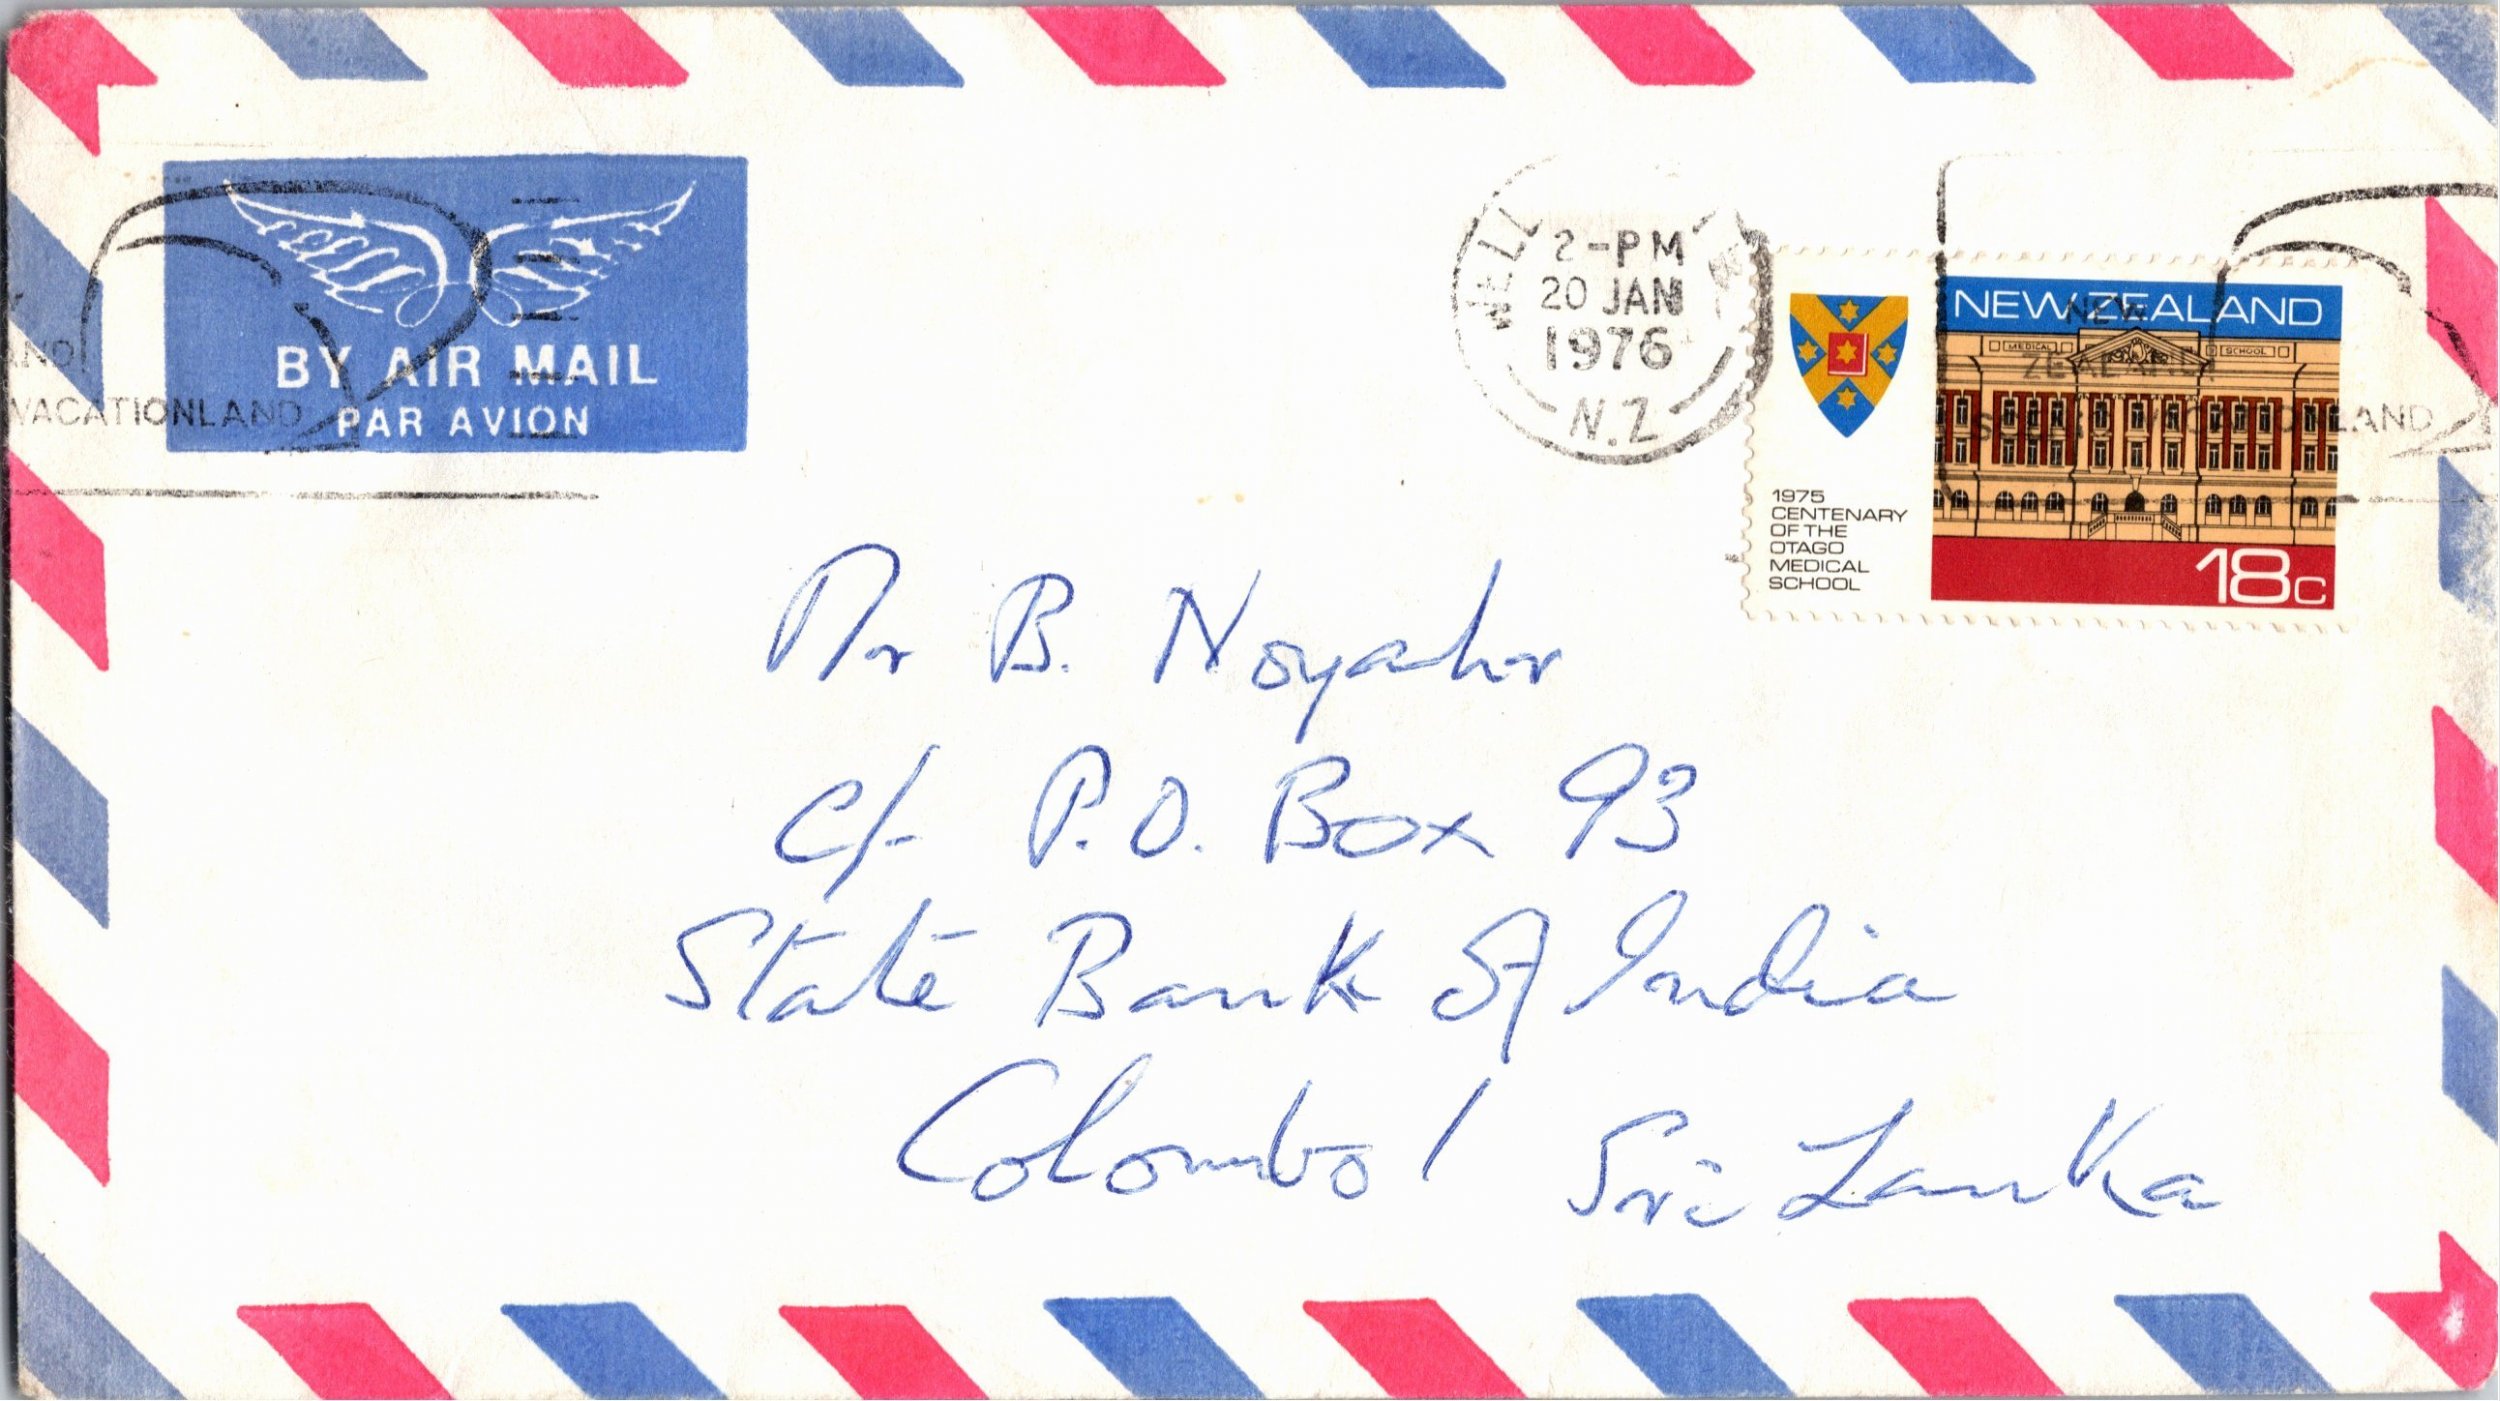 BY AIR MAIL
PAR AVION
VACATIONLAND
WELL
2-PM
20 JAN
1976
N.Z
NEW ZEALAND
MEDICAL SCHOOL
NEW
ZEALAND
LAND
1975
CENTENARY
OF THE
OTAGO
MEDICAL
SCHOOL
18c
Mr B. Noyahr
c/- P.O. Box 93
State Bank of India
Colombo 1 Sri Lanka